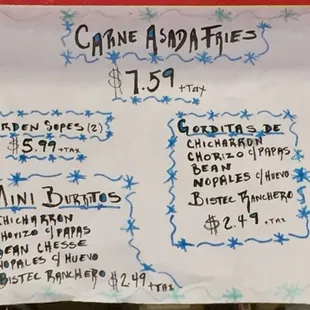 CARNE ASADA FRIES
$7.59 +TAX
RDEN SOPES (2)
$5.99 +TAX
MINI BURRITOS
CHICHARRON
CHORIZO c/ PAPAS
BEAN CHESSE
NOPALES c/ HUEVO
BISTEC RANCHERO $2.49 +TAX
GORDITAS DE
CHICHARRON
CHORIZO c/ PAPAS
BEAN
NOPALES c/ HUEVO
BISTEC RANCHERO
$2.49 +TAX